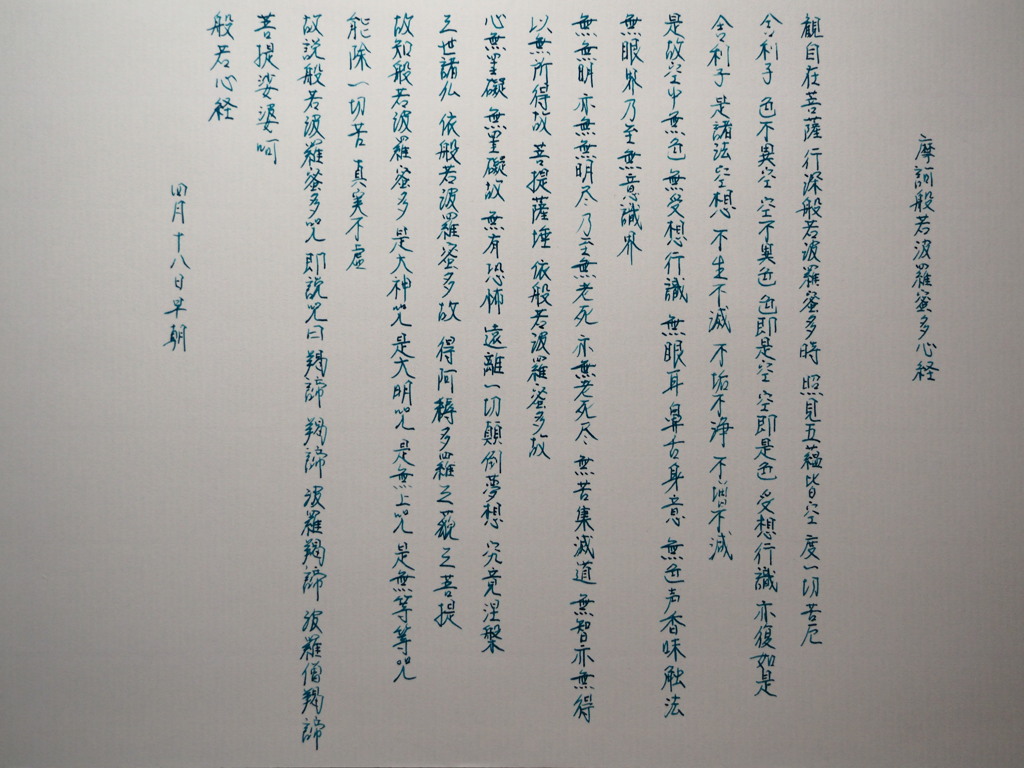 摩訶般若波羅蜜多心経
観自在菩薩 行深般若波羅蜜多時 照見五蘊皆空 度一切苦厄
舎利子 色不異空 空不異色 色即是空 空即是色 受想行識 亦復如是
舎利子 是諸法空想 不生不滅 不垢不浄 不増不減
是故空中 無色 無受想行識 無眼耳鼻舌身意 無色声香味触法
無眼界乃至無意識界
無無明 亦無無明尽 乃至無老死 亦無老死尽 無苦集滅道 無智亦無得
以無所得故 菩提薩埵 依般若波羅蜜多故
心無罣礙 無罣礙故 無有恐怖 遠離一切顛倒夢想 究竟涅槃
三世諸仏 依般若波羅蜜多故 得阿耨多羅三藐三菩提
故知般若波羅蜜多 是大神咒 是大明咒 是無上咒 是無等等咒
能除一切苦 真実不虚
故説般若波羅蜜多咒 即説咒曰 羯諦 羯諦 波羅羯諦 波羅僧羯諦
菩提娑婆呵
般若心経
四月十八日早朝